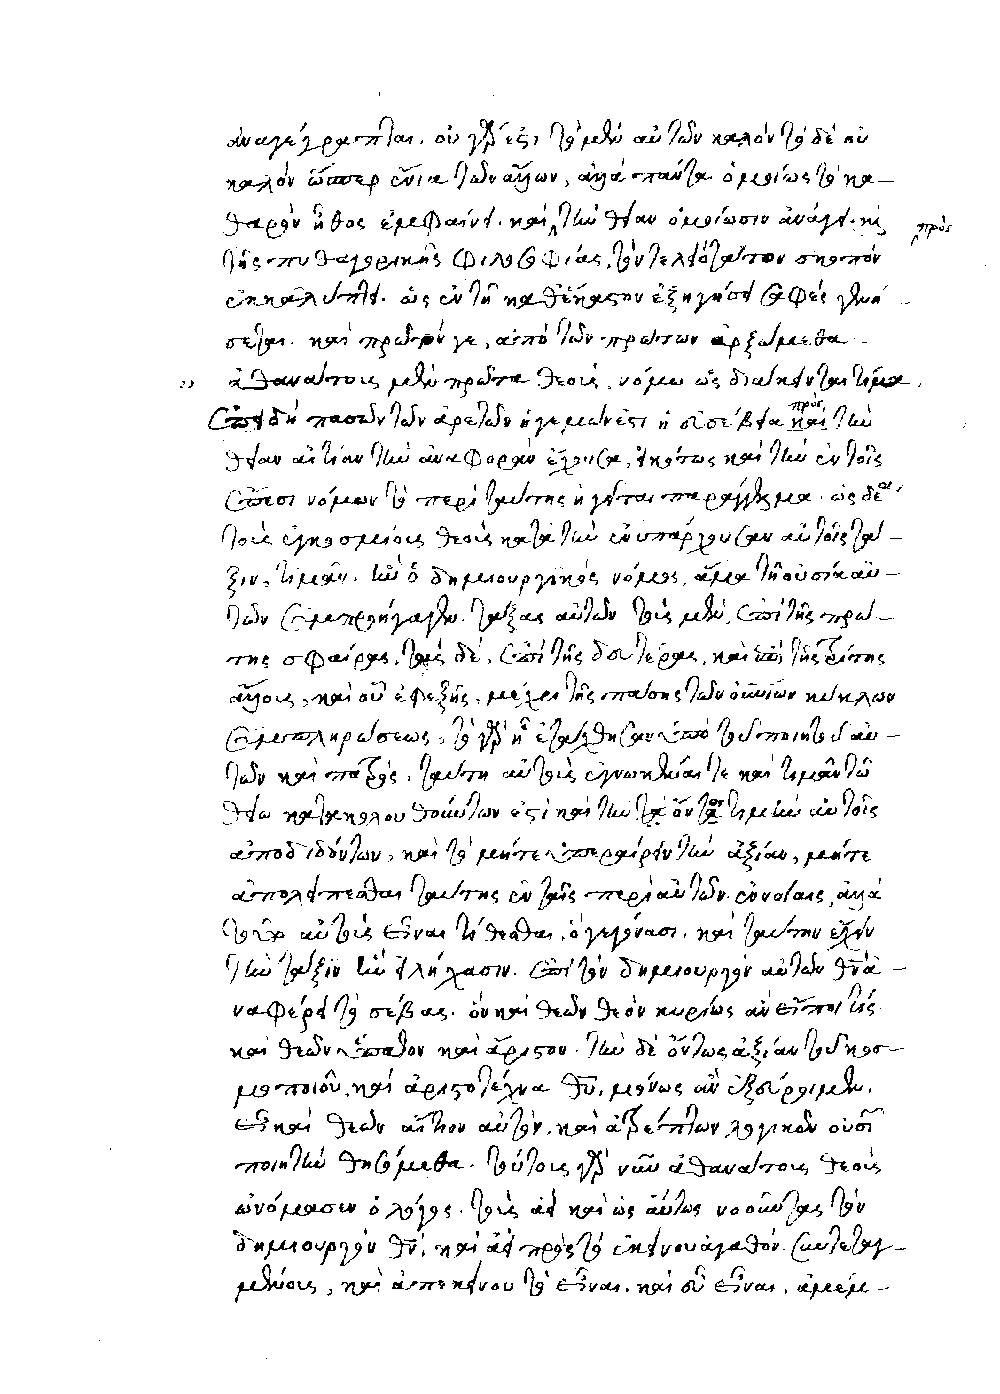 ἀναγέγραπται. οὐ γὰρ ἐστὶ τὸ μὲν αὐτῶν καλὸν τὸ δὲ οὐ
καλὸν ὥσπερ ἔνια τῶν ἄλλων, ἀλλὰ πάντα ὁμοίως τὸ κα-
θαρὸν ἦθος ἐμφαίνει. καὶ τὴν θείαν ὁμοίωσιν ἀνάγει. καὶ
πρὸς
τῆς πυθαγορικῆς φιλοσοφίας, τὸν τελειότατον σκοπὸν
ἐκκαλύπτει. ὡς ἐν τῇ καθέκαστον ἐξηγήσει σαφὲς γενή-
σεται. καὶ πρῶτόν γε, ἀπὸ τῶν πρώτων ἀρξώμεθα
ἀθανάτοις μὲν πρῶτα θεοὺς, νόμῳ ὡς διάκεινται τίμα.
Ἐπειδὴ πασῶν τῶν ἀρετῶν ἡγεμών ἐστι ἡ εὐσέβεια πρὸς καὶ τὴν
θείαν αἰτίαν τὴν ἀναφορὰν ἔχουσα, εἰκότως καὶ τὴν ἐν τοῖς
ἔπεσι νόμων τὸ περὶ ταύτης ἡγεῖται παράγγελμα. ὡς δέοι
τοὺς ἐγκοσμίους θεοὺς κατὰ τὴν ἐνυπάρχουσαν αὐτοῖς τά-
ξιν, τιμᾶν. ἣν ὁ δημιουργικὸς νόμος, ἅμα τῇ οὐσίᾳ αὐ-
τῶν συμπροήγαγεν. τάξας αὐτῶν τοὺς μὲν, ἐπὶ τῆς πρώ-
της σφαίρας, τοὺς δὲ, ἐπὶ τῆς δευτέρας, καὶ ἐπὶ τῆς τρίτης
ἄλλους, καὶ οὕτ ἐφεξῆς, μέχρι τῆς πάσης τῶν οὐνίων κύκλων
συμπληρώσεως. τὸ γὰρ ᾗ ἐτάχθησαν ὑπὸ τοῦ ποιητοῦ αὐ-
τῶν καὶ πατρὸς. ταύτῃ αὐτοὺς ἐγνωκέναι τε καὶ τιμᾶν τῷ
θείῳ κατακολουθούντων ἐστὶ καὶ τὴν ὄντως τιμὴν αὐτοῖς
ἀποδιδόντων, καὶ τὸ μήτε ὑπεραίρειν τὴν ἀξίαν, μήτε
ἀπολείπεσθαι ταύτης ἐν ταῖς περὶ αὐτῶν ἐννοίαις, ἀλλὰ
τοῦτο αὐτοὺς εἶναι τίθεσθαι, ὃ γεγόνασι. καὶ ταύτην ἔχειν
τὴν τάξιν ἣν εἰλήχασιν. ἐπὶ τὸν δημιουργὸν αὐτῶν θν ἀ-
ναφέρει τὸ σέβας. ὃν καὶ θεῶν θεὸν κυρίως ἂν εἴποι τίς
καὶ θεῶν ὕπατον καὶ ἄριστον. τὴν δὲ ὄντως ἀξίαν τοῦ κοσ-
μοποιοῦ, καὶ ἀριστοτέχνα θυ, μόνως ἂν ἐξεύροιμεν.
εἰ καὶ θεῶν αἴτιον αὐτὸν, καὶ ἀτρέπτων λογικῶν οὐσιῶν
ποιητὴν θησόμεθα. τούτοις γὰρ νῦν ἀθανάτοις θεοὺς
ὠνόμασεν ὁ λόγος. τοὺς ἀεὶ καὶ ὡς αὕτως νοοῦντας τὸν
δημιουργὸν θν, καὶ ἀεὶ πρὸς τὸ ἐκείνου ἀγαθὸν συντεταγ-
μένους, καὶ ἀπ ἐκείνου τὸ εἶναι. καὶ εὖ εἶναι. ἀμερ-